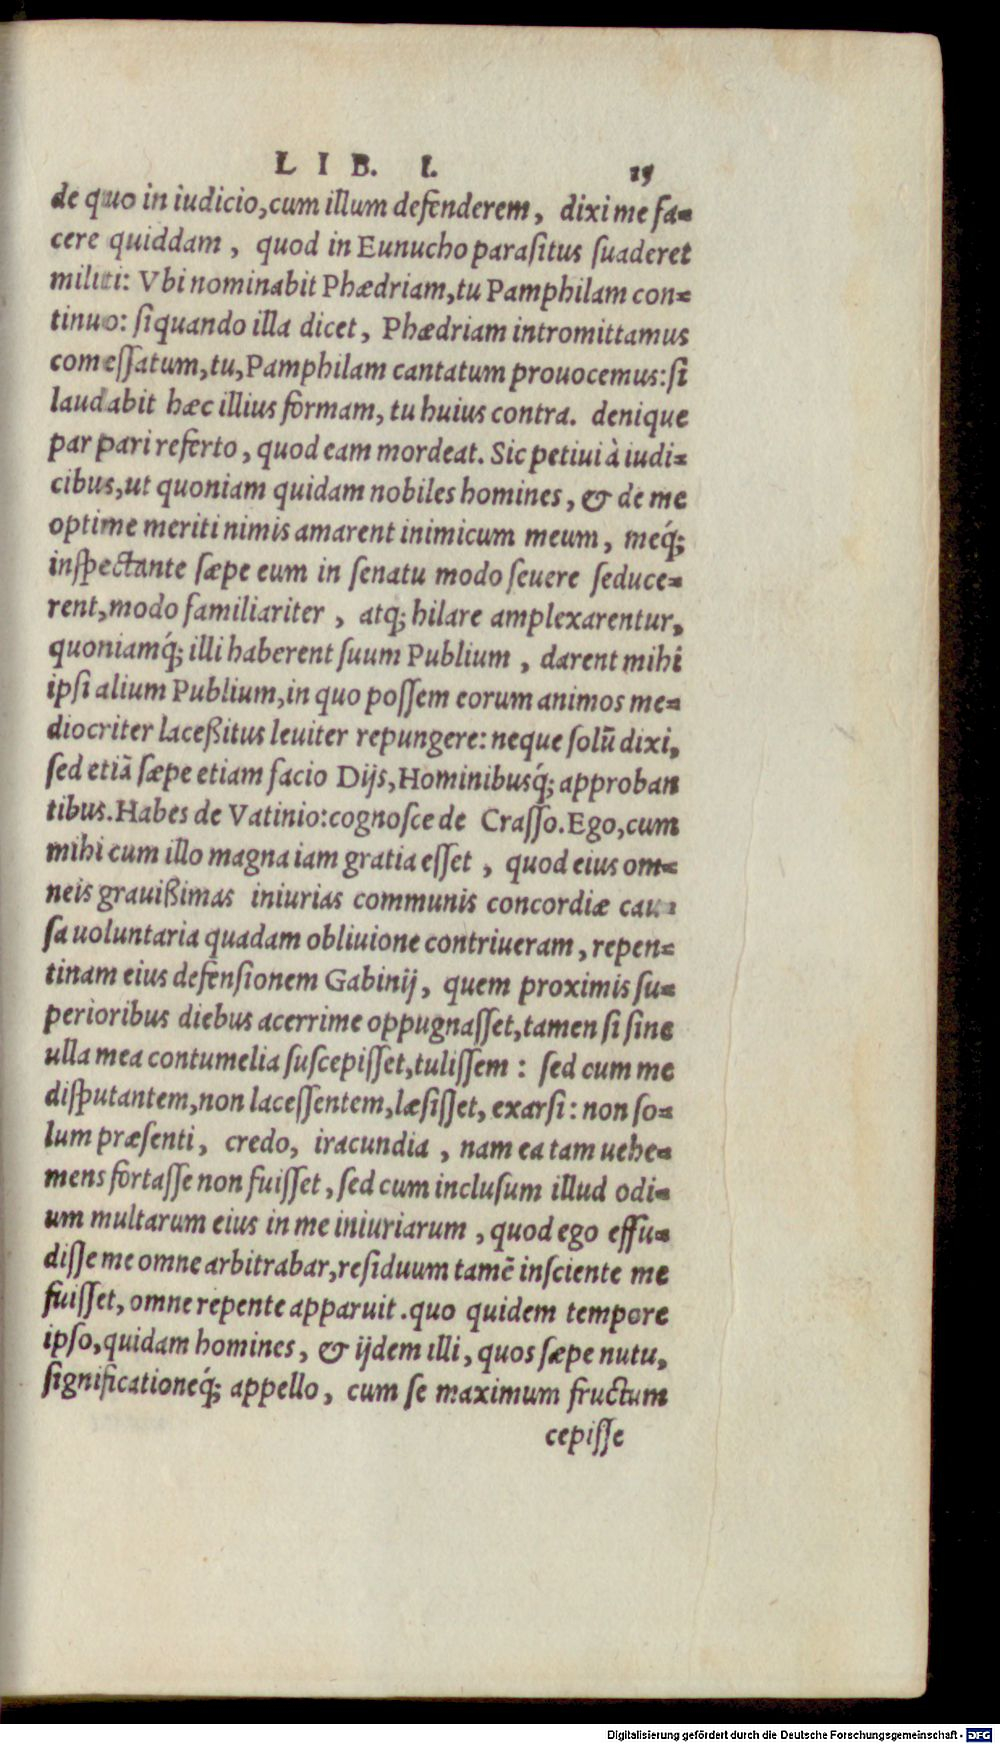 LIB. I. 15
de quo in iudicio, cum illum defenderem, dixi me fa=
cere quiddam, quod in Eunucho parasitus suaderet
militi: Vbi nominabit Phædriam, tu Pamphilam con=
tinuo: siquando illa dicet, Phædriam intromittamus
comessatum, tu, Pamphilam cantatum prouocemus: si
laudabit hæc illius formam, tu huius contra. denique
par pari referto, quod eam mordeat. Sic petiui à iudi=
cibus, ut quoniam quidam nobiles homines, & de me
optime meriti nimis amarent inimicum meum, meq́;
inspectante sæpe eum in senatu modo seuere seduce=
rent, modo familiariter, atq; hilare amplexarentur,
quoniamq́; illi haberent suum Publium, darent mihi
ipsi alium Publium, in quo possem eorum animos me=
diocriter laceßitus leuiter repungere: neque solũ dixi,
sed etiã sæpe etiam facio Dijs, Hominibusq́; approban
tibus. Habes de Vatinio: cognosce de Crasso. Ego, cum
mihi cum illo magna iam gratia esset, quod eius om=
neis grauißimas iniurias communis concordiæ cau
sa uoluntaria quadam obliuione contriueram, repen=
tinam eius defensionem Gabinij, quem proximis su=
perioribus diebus acerrime oppugnasset, tamen si sine
ulla mea contumelia suscepisset, tulissem: sed cum me
disputantem, non lacessentem, læsisset, exarsi: non so=
lum præsenti, credo, iracundia, nam ea tam uehe=
mens fortasse non fuisset, sed cum inclusum illud odi=
um multarum eius in me iniuriarum, quod ego effu=
disse me omne arbitrabar, residuum tamẽ insciente me
fuisset, omne repente apparuit. quo quidem tempore
ipso, quidam homines, & ijdem illi, quos sæpe nutu,
significationeq́; appello, cum se maximum fructum
cepisse
Digitalisierung gefördert durch die Deutsche Forschungsgemeinschaft - DFG